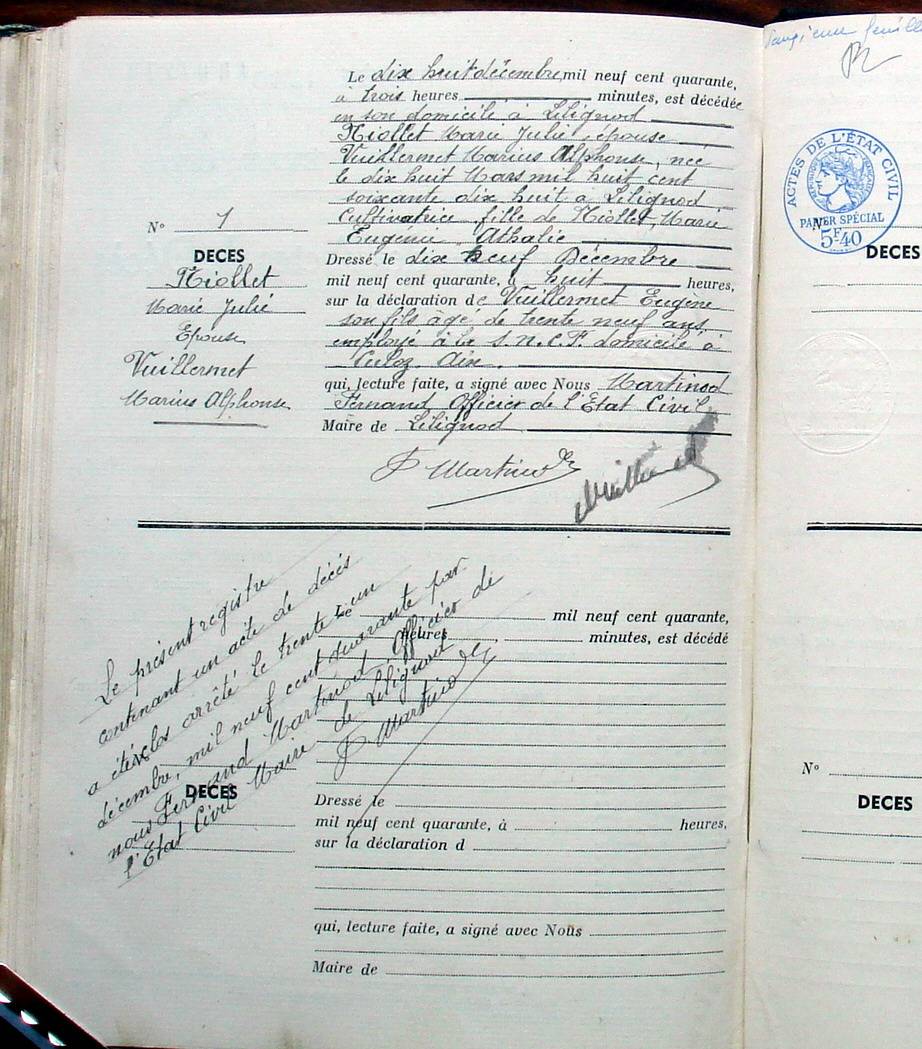 Le dix huit décembre, mil neuf cent quarante,
à trois heures minutes, est décédée
en son domicile à Lilignod
Niollet Marie Julie, épouse
Vuillermet Marius Alphonse, née
le dix huit Mars mil huit cent
soixante dix huit à Lilignod
Cultivatrice, fille de Niollet, Marie
Eugénie Athalie
Dressé le dix neuf Décembre
mil neuf cent quarante, à huit heures,
sur la déclaration de Vuillermet Eugène
son fils âgé de trente neuf ans
employé à la S.N.C.F. domicilé à
Culoz Ain.
qui, lecture faite, a signé avec Nous Martinod
Fernand Officier de l'Etat Civil
Maire de Lilignod
N° 1
DECES
Niollet
Marie Julie
Epouse
Vuillermet
Marius Alphonse
F Martinod
Le présent registre
contenant un acte de décès
a été clos arrêté le trente un
décembre, mil neuf cent quarante par
nous Fernand Martinod Officier de
l'Etat Civil Maire de Lilignod
F Martinod
Le mil neuf cent quarante,
heures minutes, est décédé
DECES
Dressé le
mil neuf cent quarante, à heures,
sur la déclaration d
qui, lecture faite, a signé avec Nous
Maire de
ACTES DE L'ÉTAT CIVIL
PAPIER SPÉCIAL
5F40
N°
DECES
N°
DECES